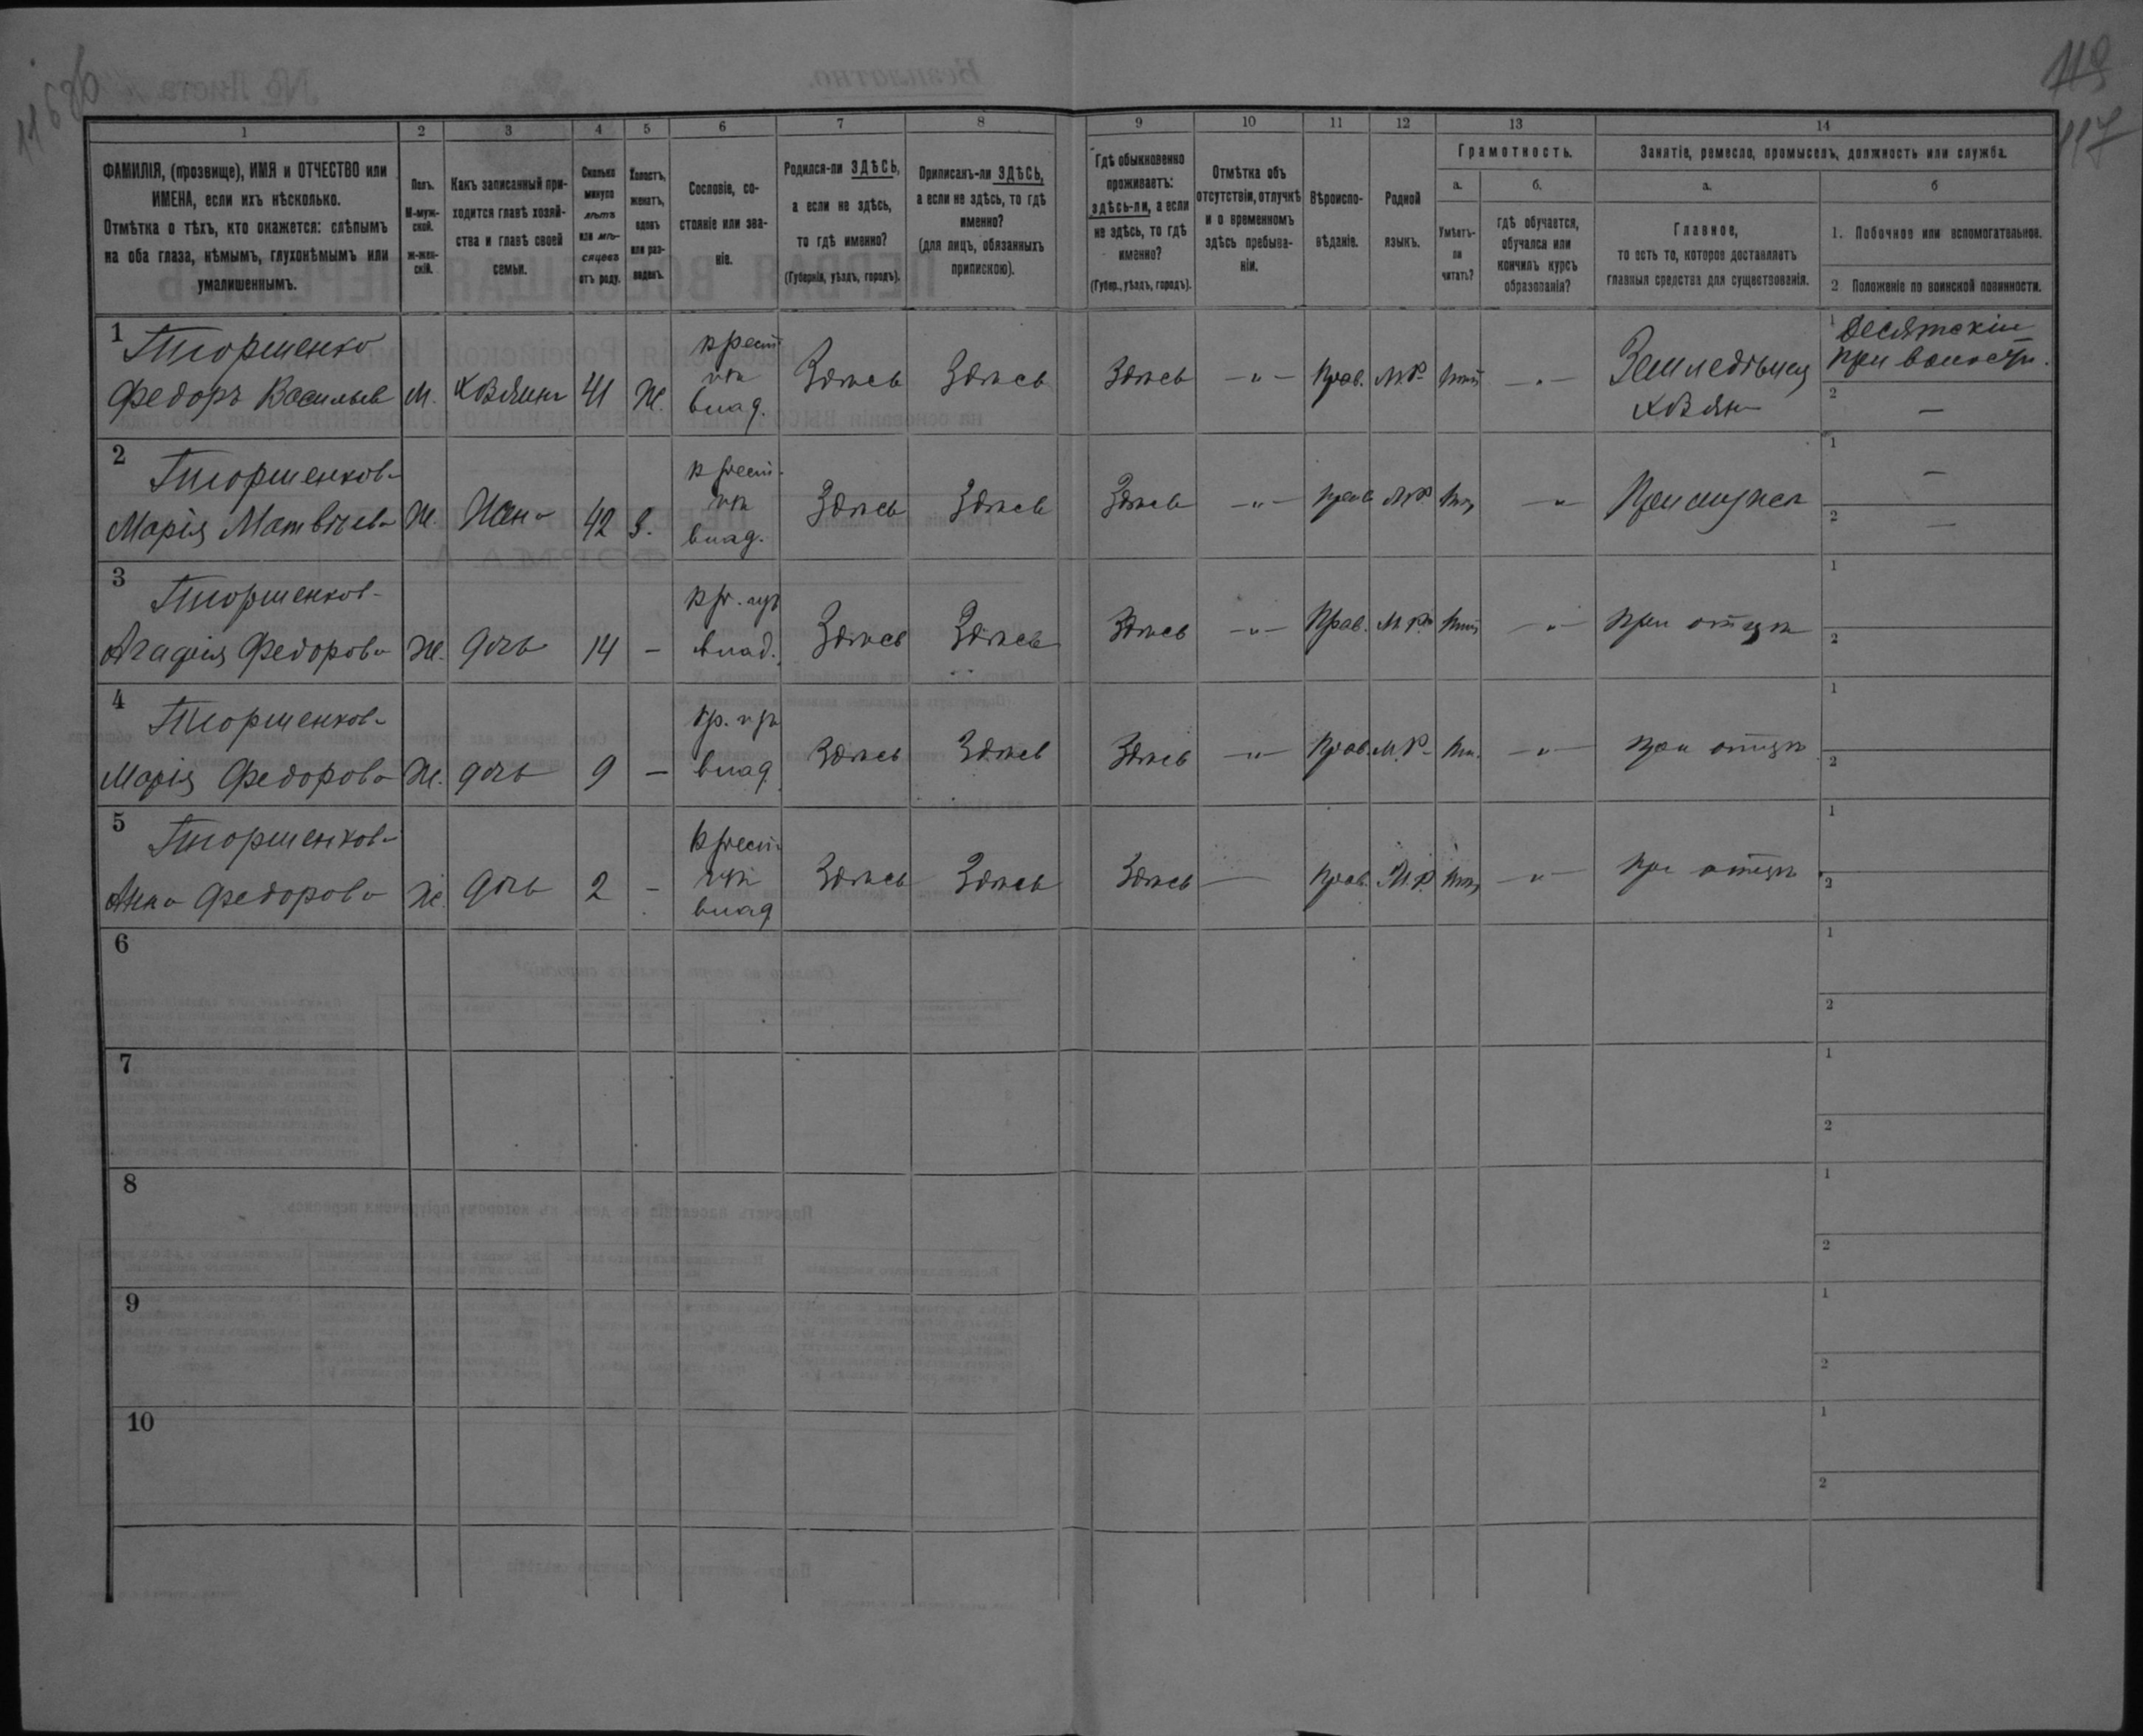 116 об
119
117
1 2 3 4 5 6 7 8 9 10 11 12 13 14
ФАМИЛІЯ, (прозвище), ИМЯ и ОТЧЕСТВО или ИМЕНА, если ихъ нѣсколько.
Отмѣтка о тѣхъ, кто окажется: слѣпымъ на оба глаза, нѣмымъ, глухонѣмымъ или умалишеннымъ.
Полъ.
М-мужской.
ж-женскій.
Какъ записанный приходится главѣ хозяйства и главѣ своей семьи.
Сколько минуло лѣтъ или мѣсяцевъ отъ роду.
Холостъ, женатъ, вдовъ или разведенъ.
Сословіе, состояніе или званіе.
Родился-ли ЗДѢСЬ, а если не здѣсь, то гдѣ именно?
(Губернія, уѣздъ, городъ).
Приписанъ-ли ЗДѢСЬ, а если не здѣсь, то гдѣ именно?
(для лицъ, обязанныхъ припискою).
Гдѣ обыкновенно проживаетъ: здѣсь-ли, а если не здѣсь, то гдѣ именно?
(Губер., уѣздъ, городъ).
Отмѣтка объ отсутствіи, отлучкѣ и о временномъ здѣсь пребываніи.
Вѣроисповѣданіе.
Родной языкъ.
Грамотность.
а.
Умѣетъ-ли читать?
б.
гдѣ обучается, обучался или кончилъ курсъ образованія?
Занятіе, ремесло, промыселъ, должность или служба.
а.
Главное,
то есть то, которое доставляетъ главныя средства для существованія.
б
1. Побочное или вспомогательное.
2 Положеніе по воинской повинности.
1
Федоръ Васильев М. хозяинъ 41 Ж. крест. влад. Здѣсь Здѣсь Здѣсь —"— Прав. М.Р. нѣт —"— Земледѣлец хозяин
1 Десятскій при волости.
2 —
2
Марія Матвѣева Ж. Жена 42 З. крест. влад. Здѣсь Здѣсь Здѣсь —"— прав М.Р. нѣт —"— При мужѣ
1 —
2 —
3
Агафія Федорова Ж. дочь 14 — кр. влад. Здѣсь Здѣсь Здѣсь —"— Прав. М.Р. нѣт —"— при отцѣ
1
2
4
Марія Федорова Ж. дочь 9 — кр. влад Здѣсь Здѣсь Здѣсь —"— Прав. М.Р. нѣт —"— при отцѣ
1
2
5
Анна Федорова Ж. дочь 2 — крест. влад Здѣсь Здѣсь Здѣсь — Прав. М.Р. нѣт —"— при отцѣ
1
2
6
1
2
7
1
2
8
1
2
9
1
2
10
1
2